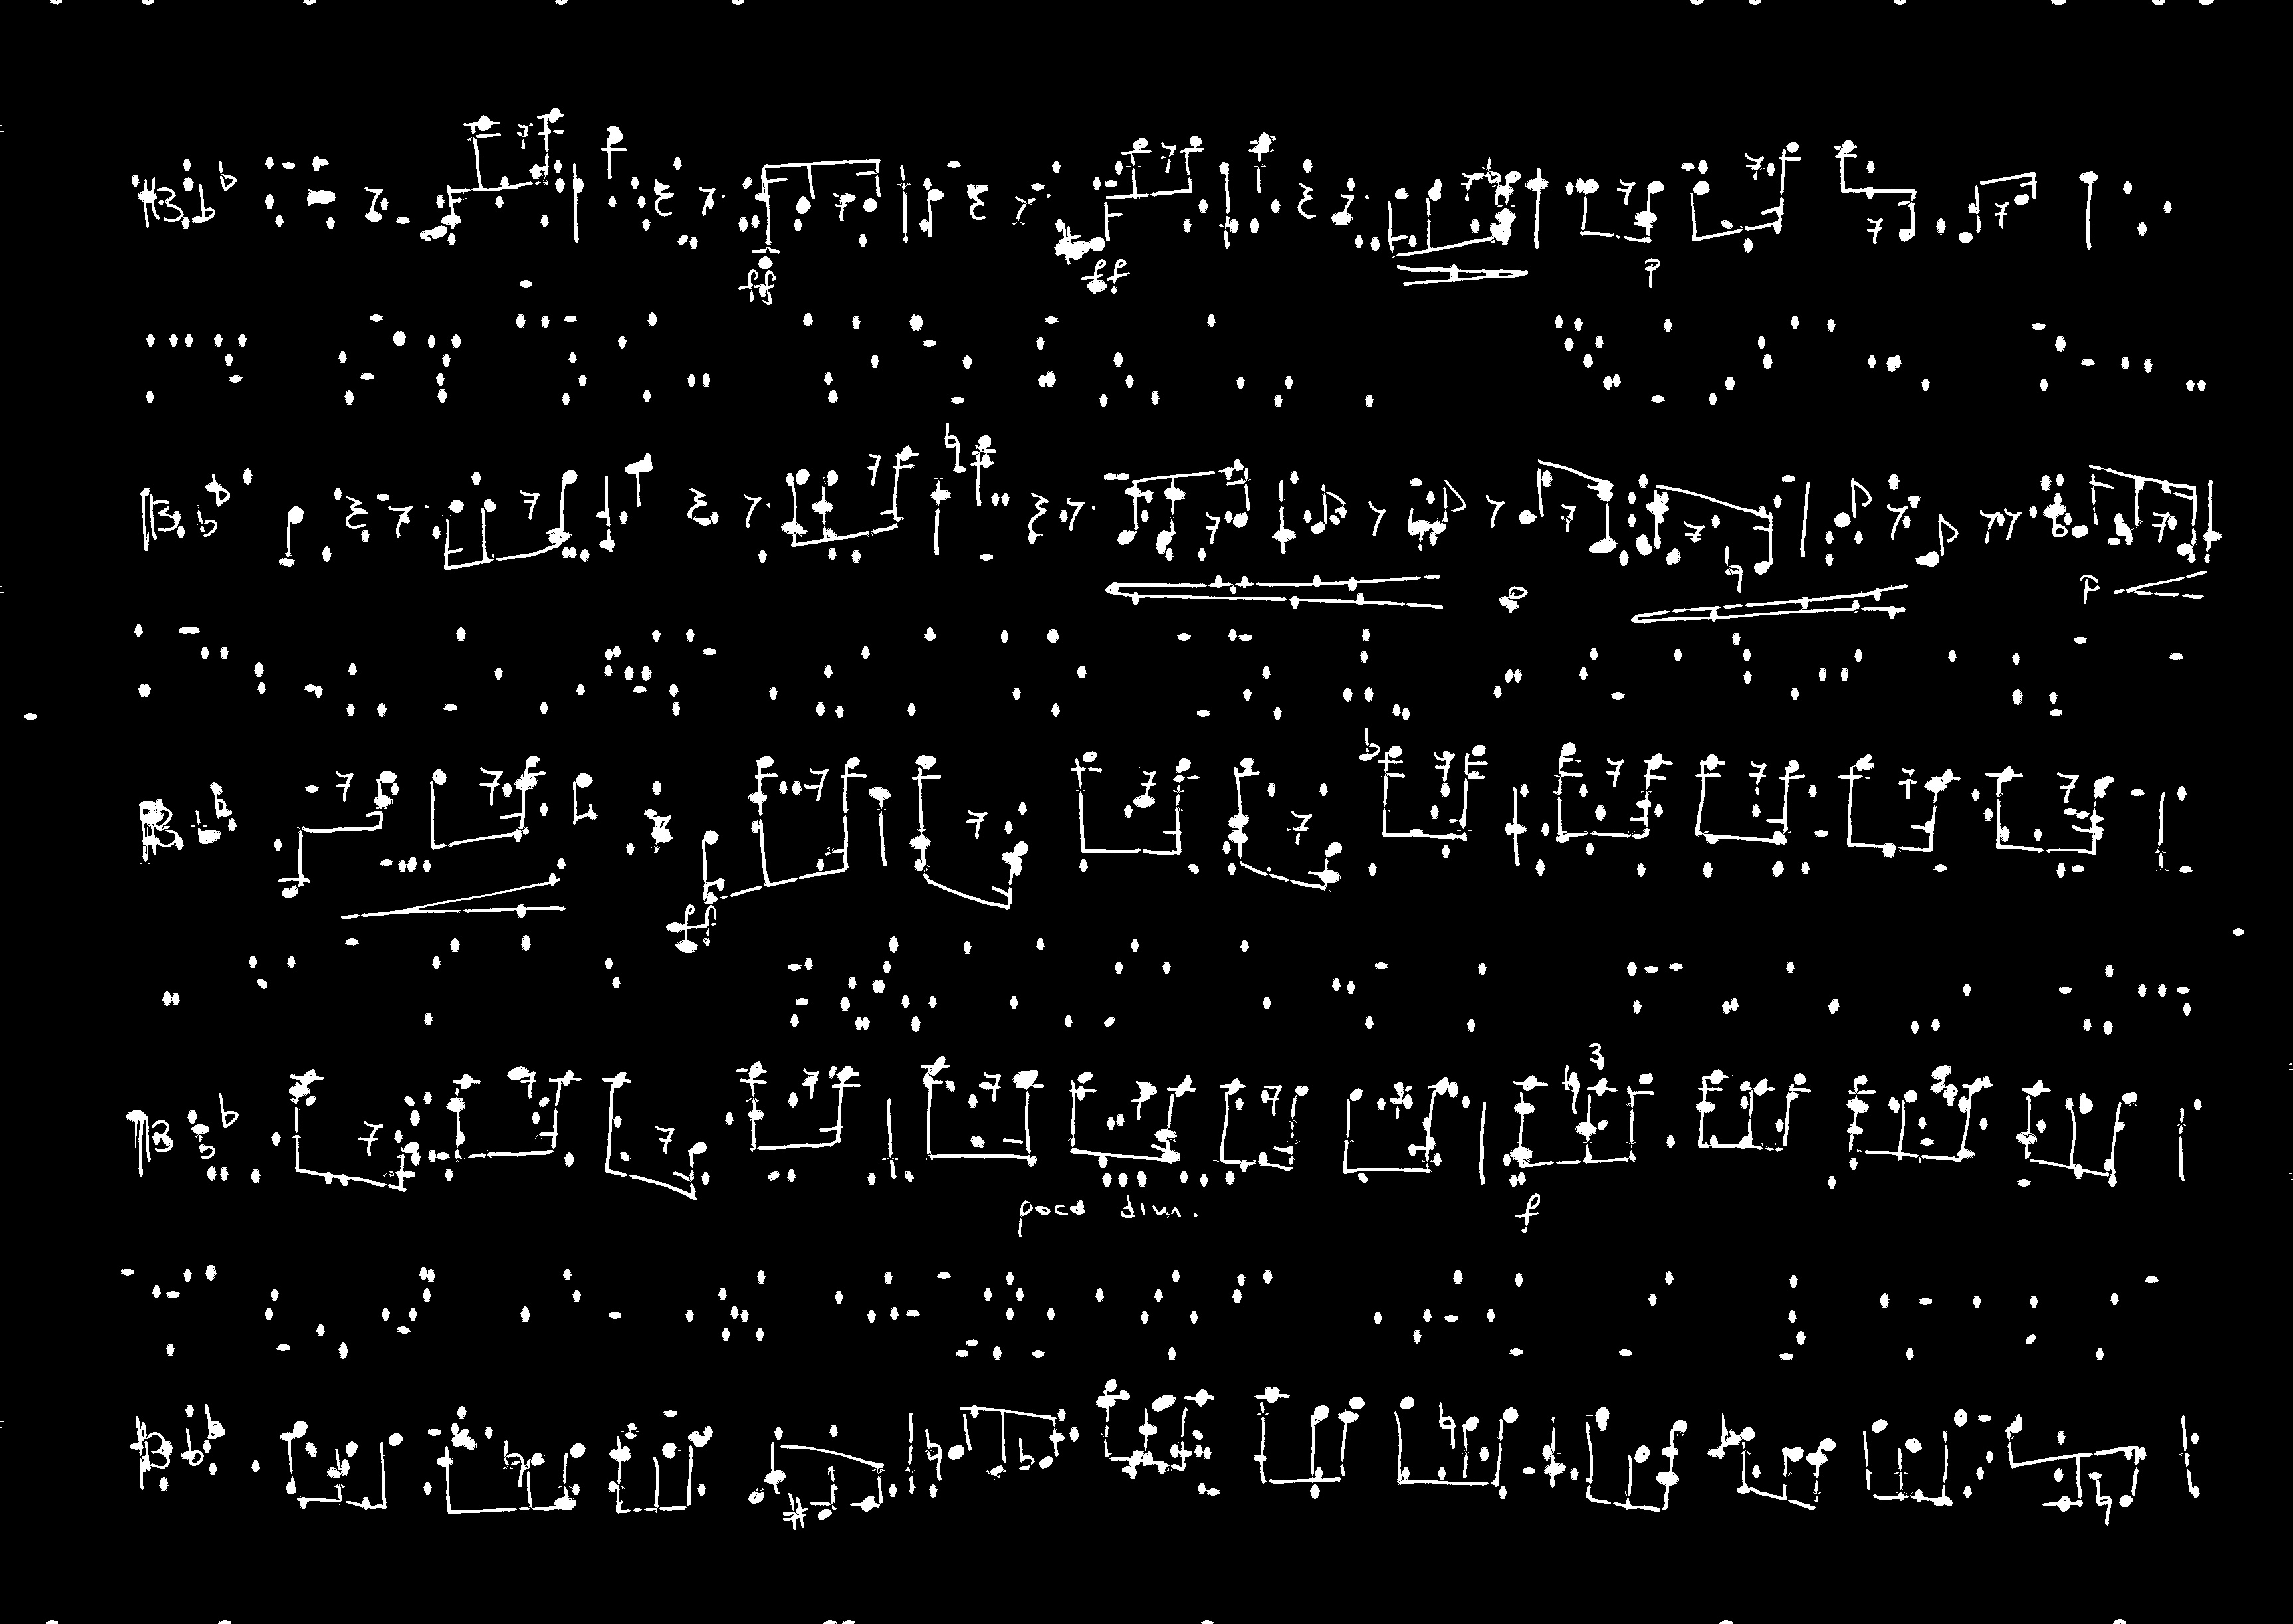 ff ff p
p p
ff
3
poco dim.
f